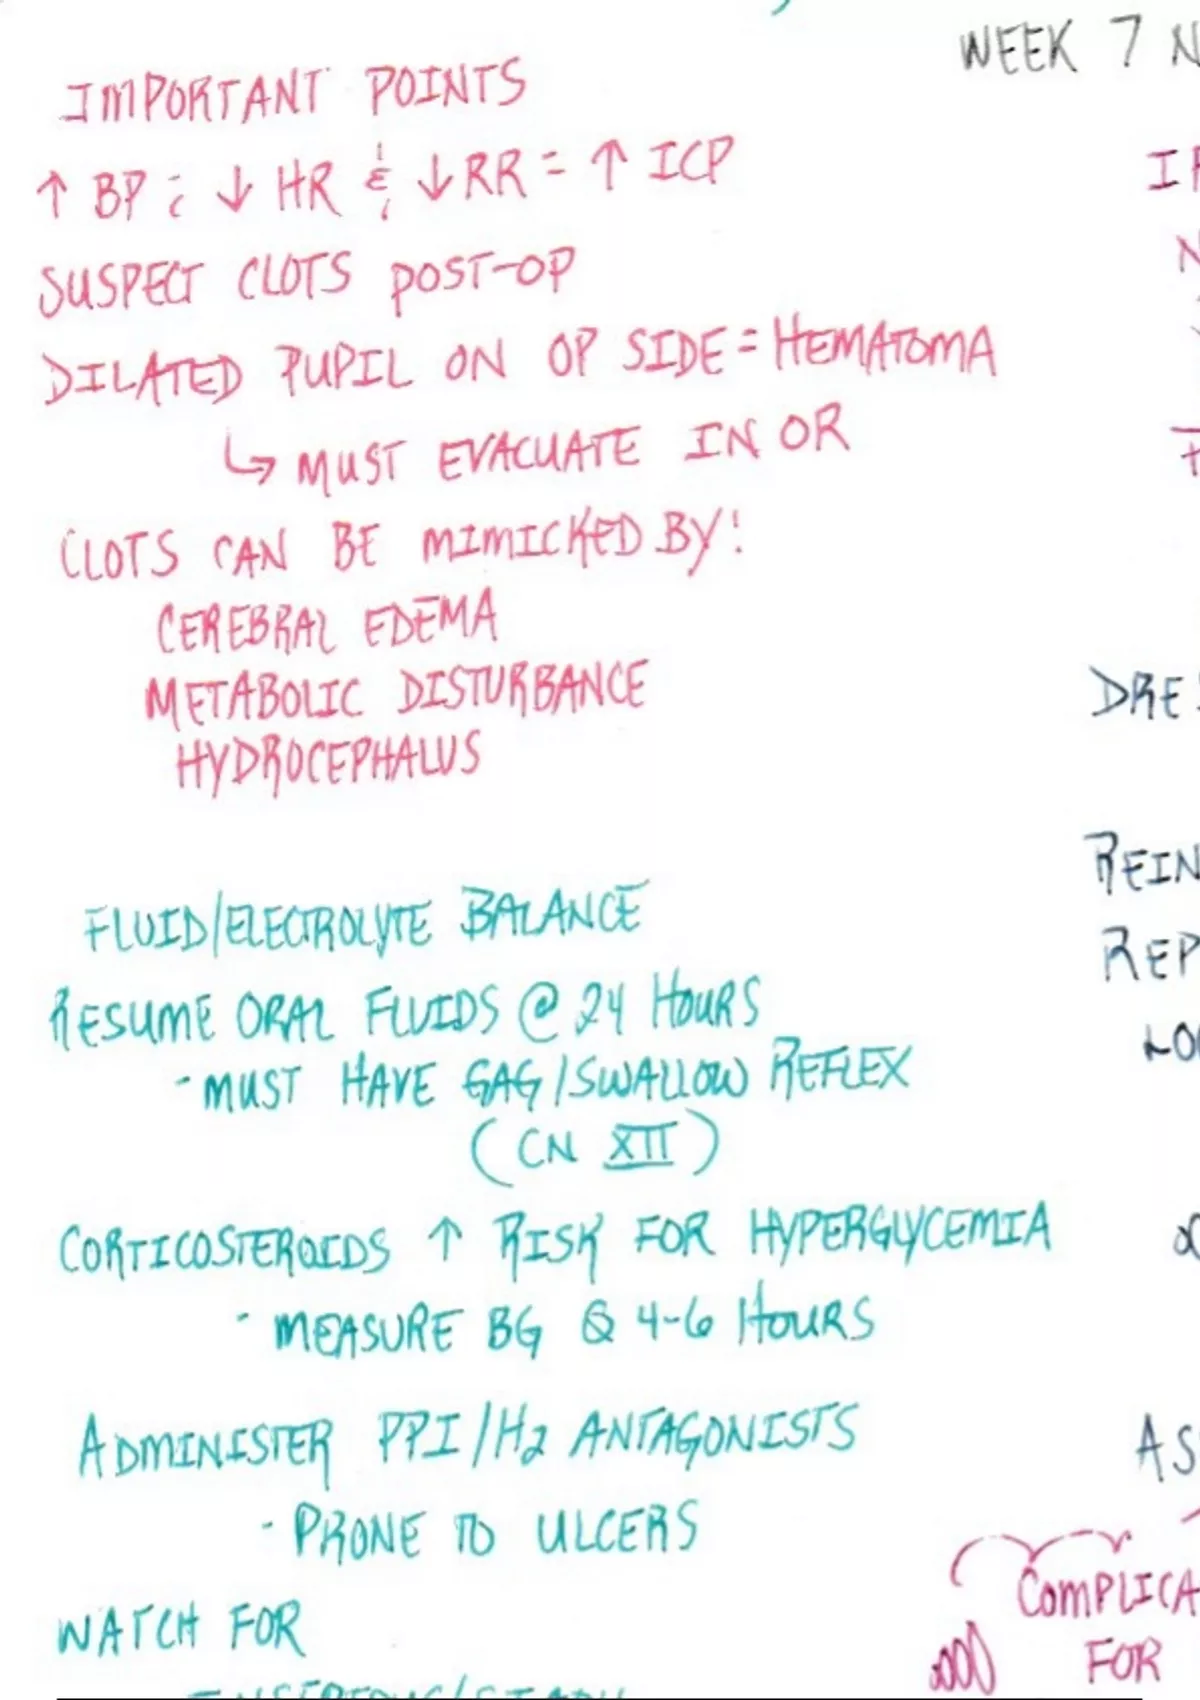 WEEK 7 N
IMPORTANT POINTS
↑ BP c̄ ↓ HR & ↓ RR = ↑ ICP
SUSPECT CLOTS POST-OP
DILATED PUPIL ON OP SIDE = HEMATOMA
↳ MUST EVACUATE IN OR
CLOTS CAN BE MIMICKED BY:
CEREBRAL EDEMA
METABOLIC DISTURBANCE
HYDROCEPHALUS
FLUID/ELECTROLYTE BALANCE
RESUME ORAL FLUIDS @ 24 HOURS
- MUST HAVE GAG/SWALLOW REFLEX
(CN XII)
CORTICOSTEROIDS ↑ RISK FOR HYPERGLYCEMIA
- MEASURE BG Q 4-6 HOURS
ADMINISTER PPI/H2 ANTAGONISTS
- PRONE TO ULCERS
WATCH FOR
DRES
REIN
REP
AS
COMPLICA
FOR